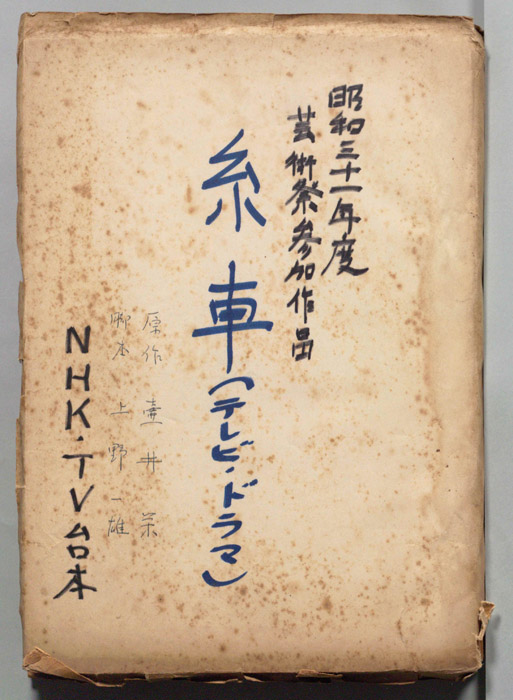 昭和三十一年度
芸術祭参加作品
糸車(テレビ・ドラマ)
原作 壷井栄
脚本 上野一雄
NHK・TV台本